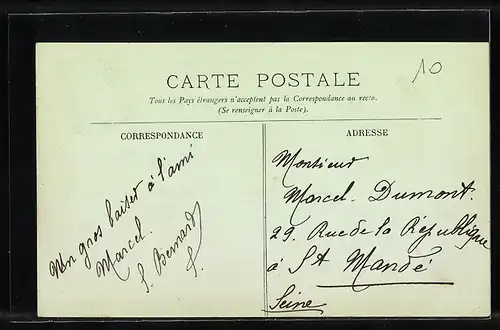 10
CARTE POSTALE
Tous les Pays étrangers n'acceptent pas la Correspondance au recto.
(Se renseigner à la Poste).
CORRESPONDANCE
Un gros baiser à l'ami
Marcel.
S. Bernard
ADRESSE
Monsieur
Marcel. Dumont.
29. Rue de la République
à St Mandé
Seine